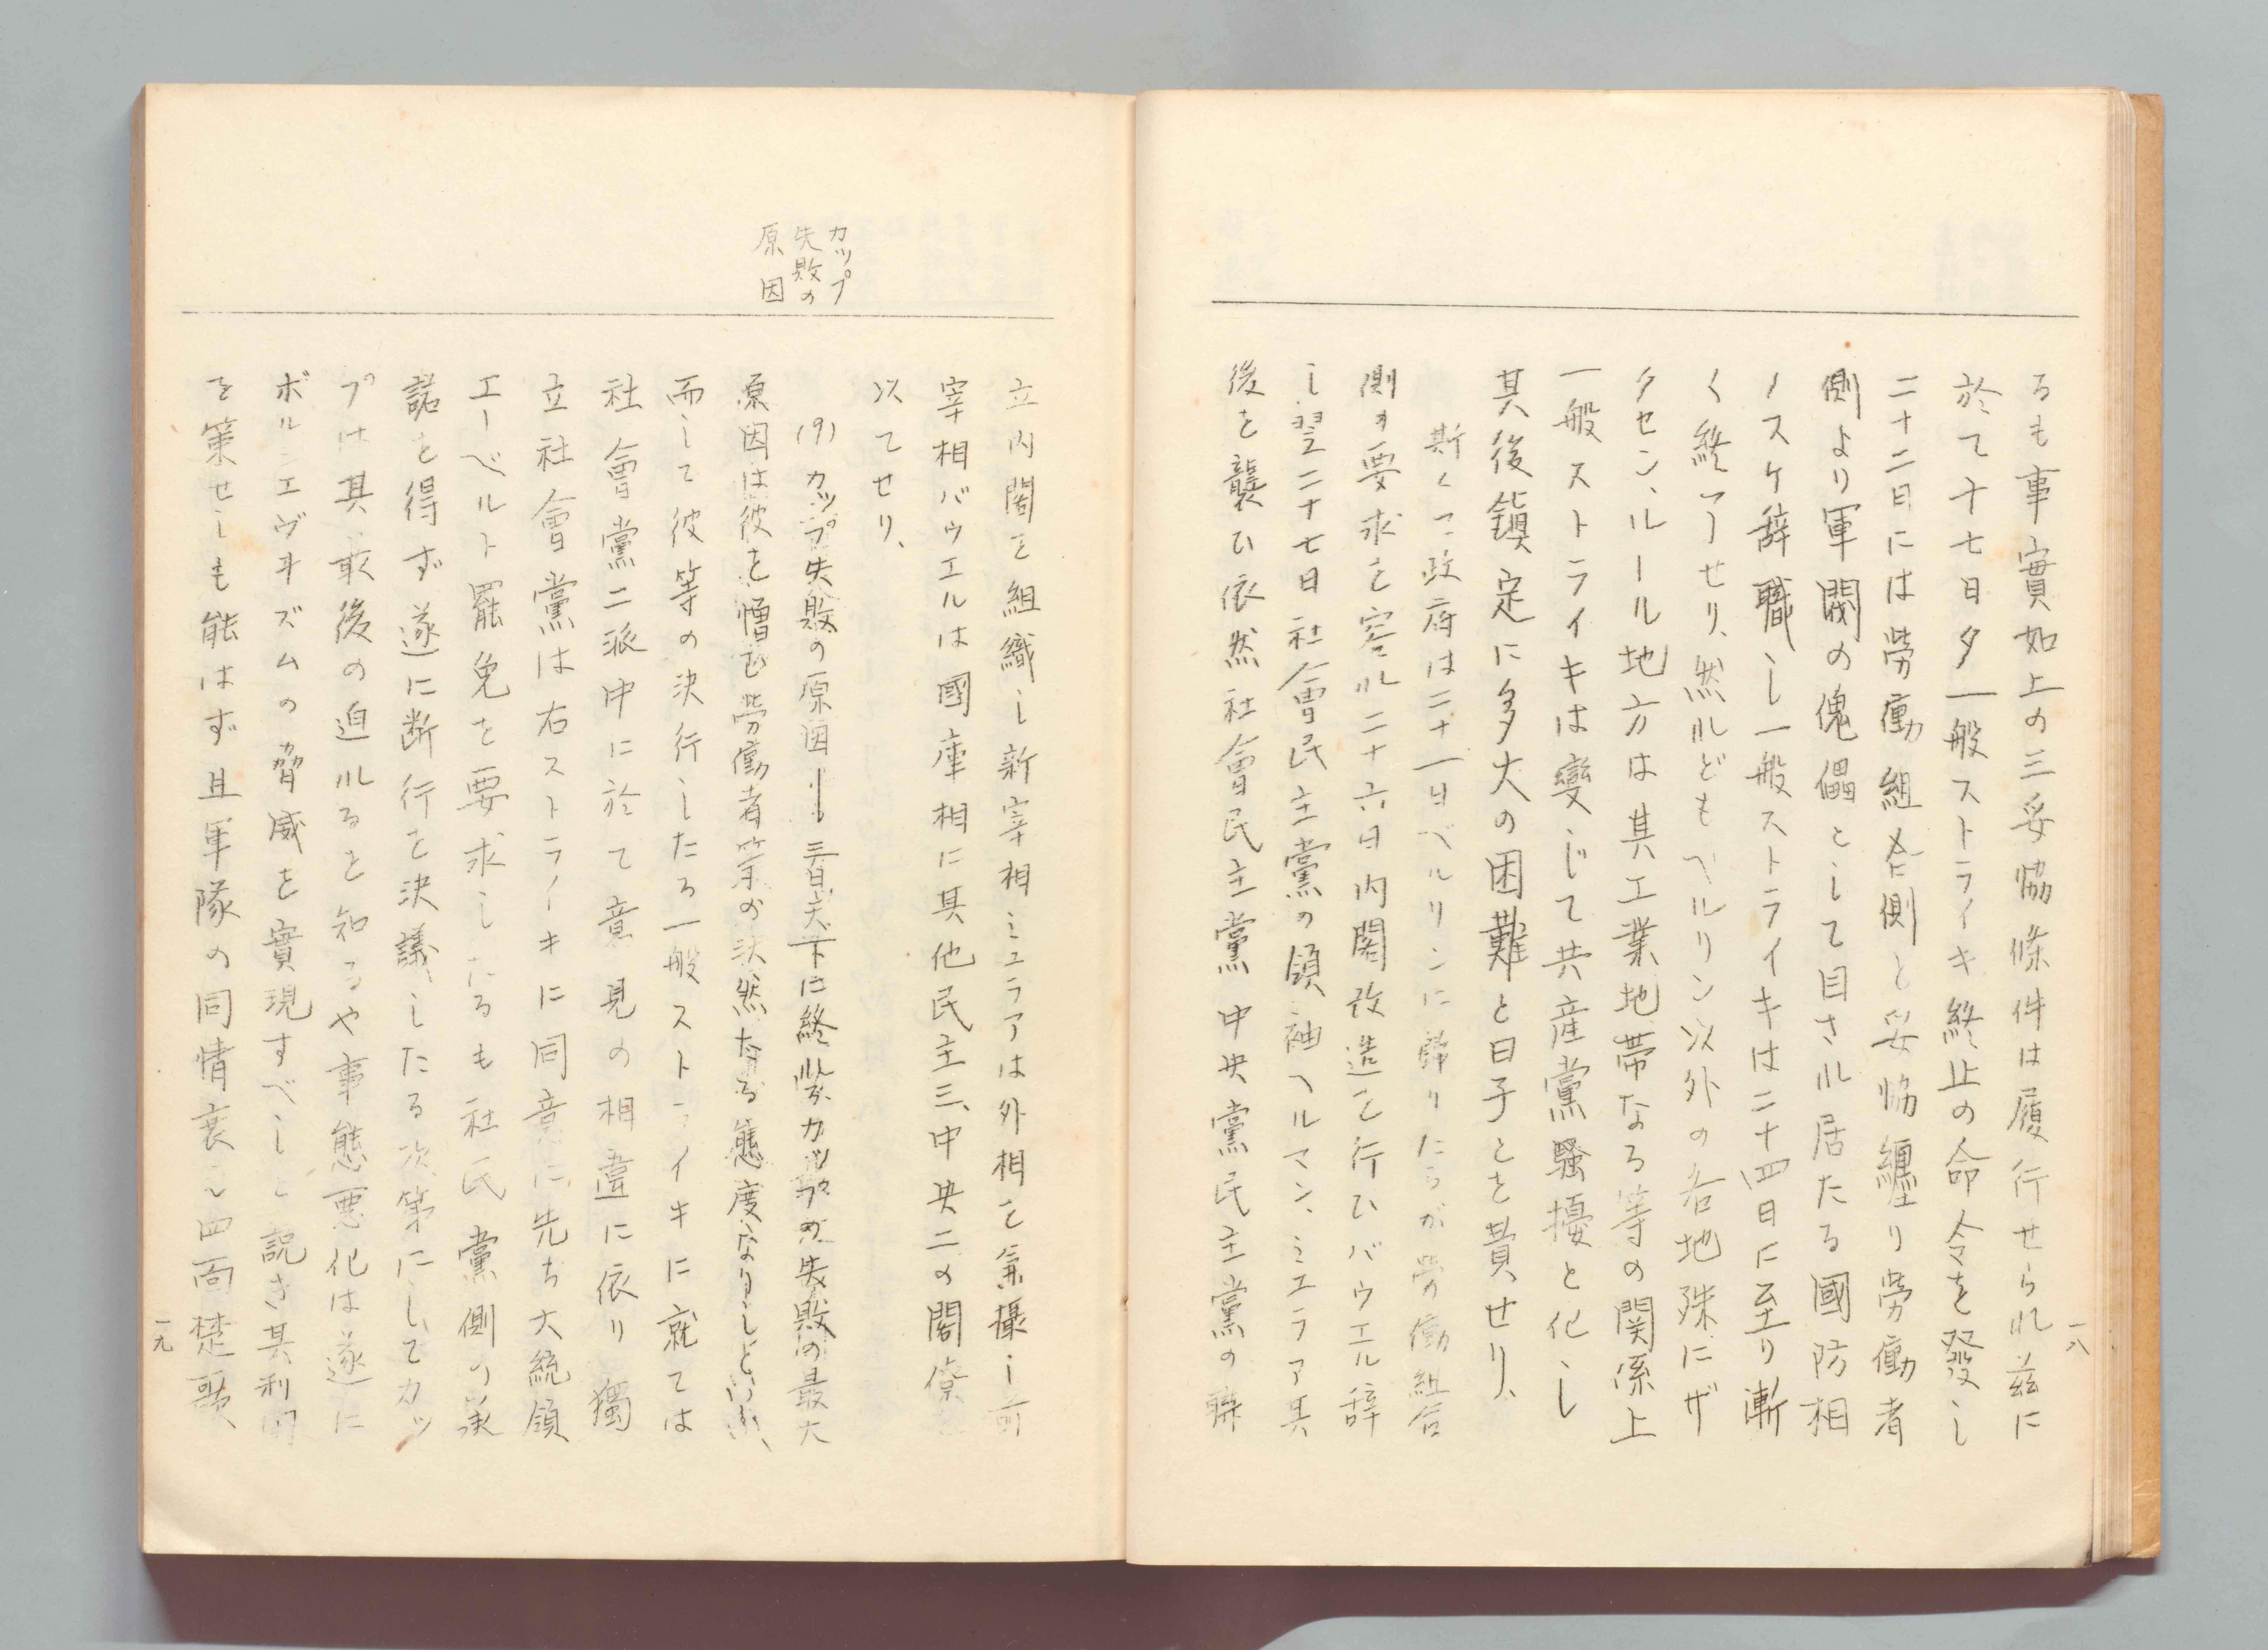 一八
るも事實如上の三妥協條件は履行せられ茲に
於て十七日夕一般ストライキ終止の命令を發し
二十二日には勞働組合側と妥協纏り勞働者
側より軍閥の傀儡として目され居たる國防相
ノスケ辞職し一般ストライキは二十四日に至り漸
く終了せり、然れどもベルリン以外の各地殊にザ
クセン、ルール地方は其工業地帶なる等の関係上
一般ストライキは變じて共産黨騒擾と化し
其後鎮定に多大の困難と日子とを費せり、
斯くて政府は二十一日ベルリンに歸りたるが勞働組合
側の要求を容れ二十六日内閣改造を行ひバウエル辞
し翌二十七日社會民主黨の領袖ヘルマン、ミユラア其
後を襲ひ依然社會民主黨中央黨民主黨の聯
カップ
失敗の
原因
立内閣を組織し新宰相ミユラアは外相を兼攝し前
宰相バウエルは國庫相に其他民主三、中央二の閣僚を
以てせり、
(9) カップ失敗の原因‖三日天下に終れるカップの失敗の最大
原因は彼を憎む勞働者等の決然たる態度なりしと云ふ、
而して彼等の決行したる一般ストライキに就ては
社會黨二派中に於て意見の相違に依り獨
立社會黨は右ストライキに同意に先ち大統領
エーベルト罷免を要求したるも社民黨側の承
諾を得ず遂に断行を決議したる次第にしてカッ
プは其最後の迫れるを知るや事態悪化は遂に
ボルシエヴヰズムの脅威を實現すべしと説き其利用
を策せしも能はず且軍隊の同情衰へ四面楚歌、
一九